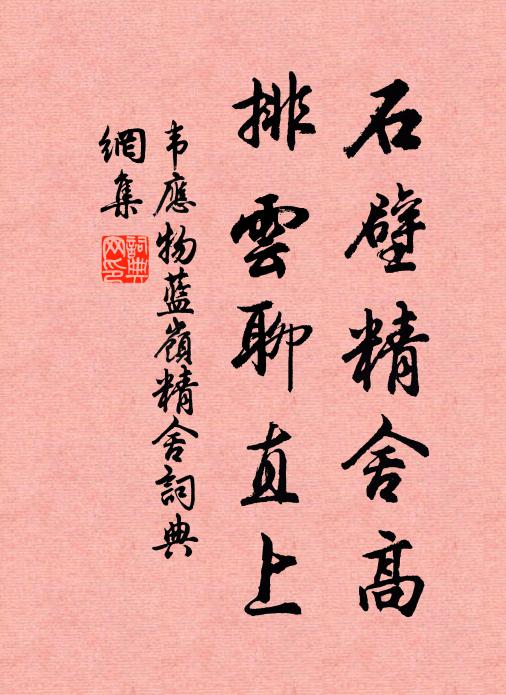 石壁精舍高
排雲聊直上
韦應物藍嶺精舍詞典
網集
詞典
网印